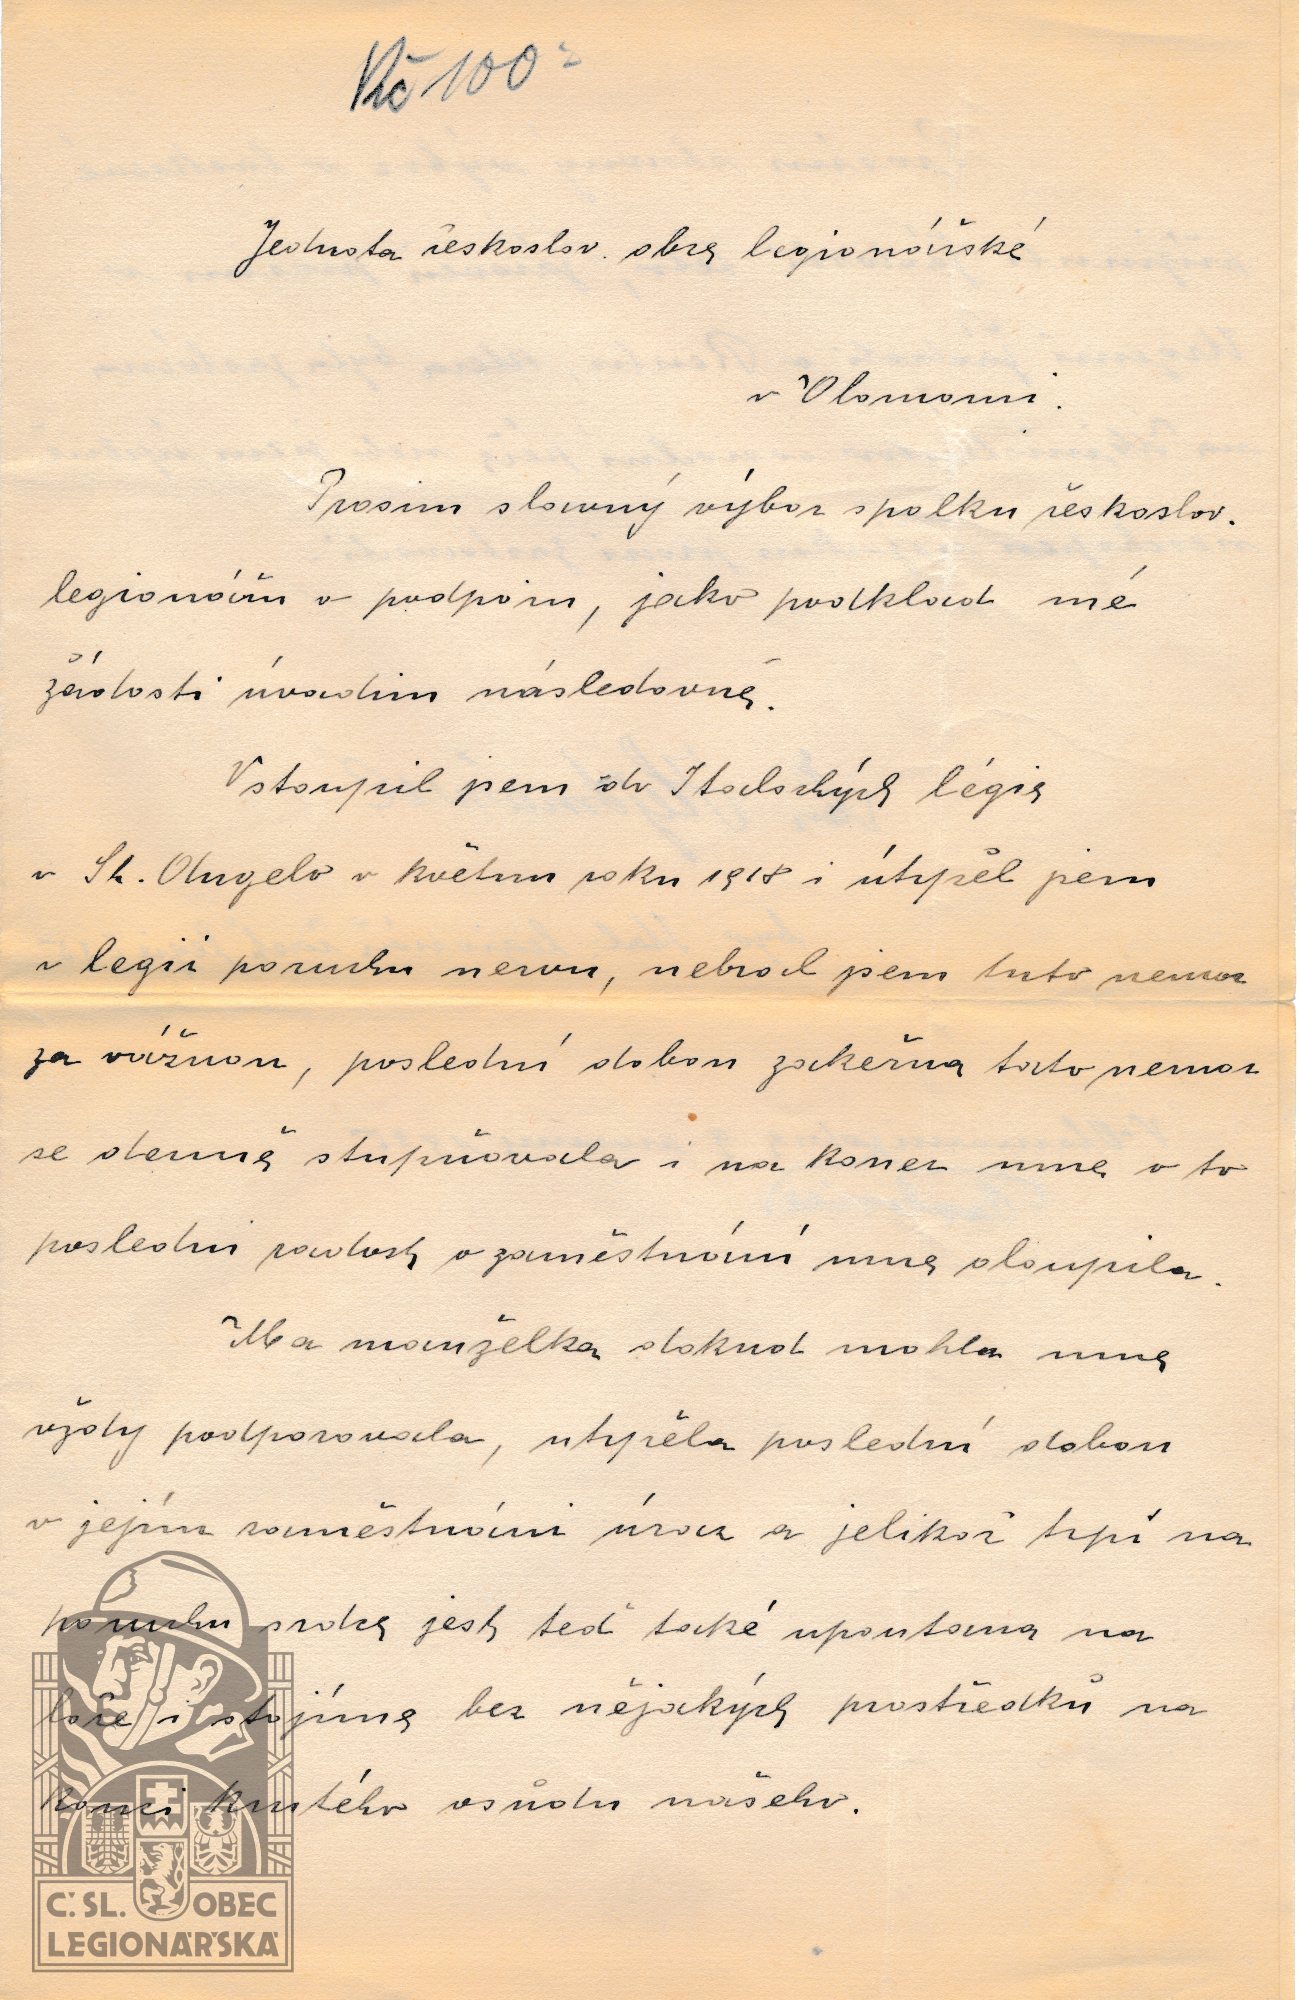 Kč 100
Jednota českoslov. obce legionářské
v Olomouci.
Prosim slavný výbor spolku českoslov.
legionářu o podporu, jako podklad mé
žádosti úvadim následovně.
Vstoupil jsem do Italských légie
v St. Angelo v květnu roku 1918 i útrpěl jsem
v legii poruchu nervu, nebral jsem tuto nemoc
za vážnou, poslední dobou zakeřna tato nemoc
se denně stupňovala i na konec mne o to
posledni radost o zaměstnání mne oloupila.
Ma manželka dokud mohla mne
vždy podporovala, utrpěla poslední dobou
v jejím zaměstnáni úraz a jelikož trpí na
poruchu srdce jest teď také upoutana na
lože i stojíme bez nějakých prostředků na
konci krutého osůdu našeho.
Č. SL. OBEC
LEGIONÁŘSKÁ